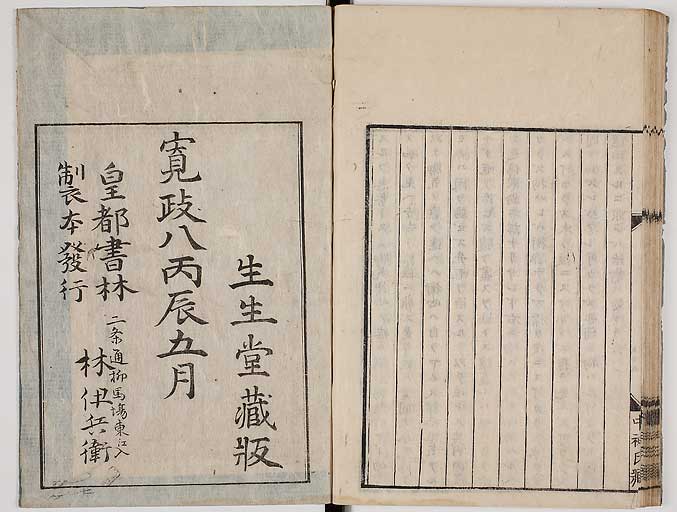 生生堂藏版
寛政八丙辰五月
皇都書林
二条通柳馬場東江入
林伊兵衛
製本發行
中神氏藏